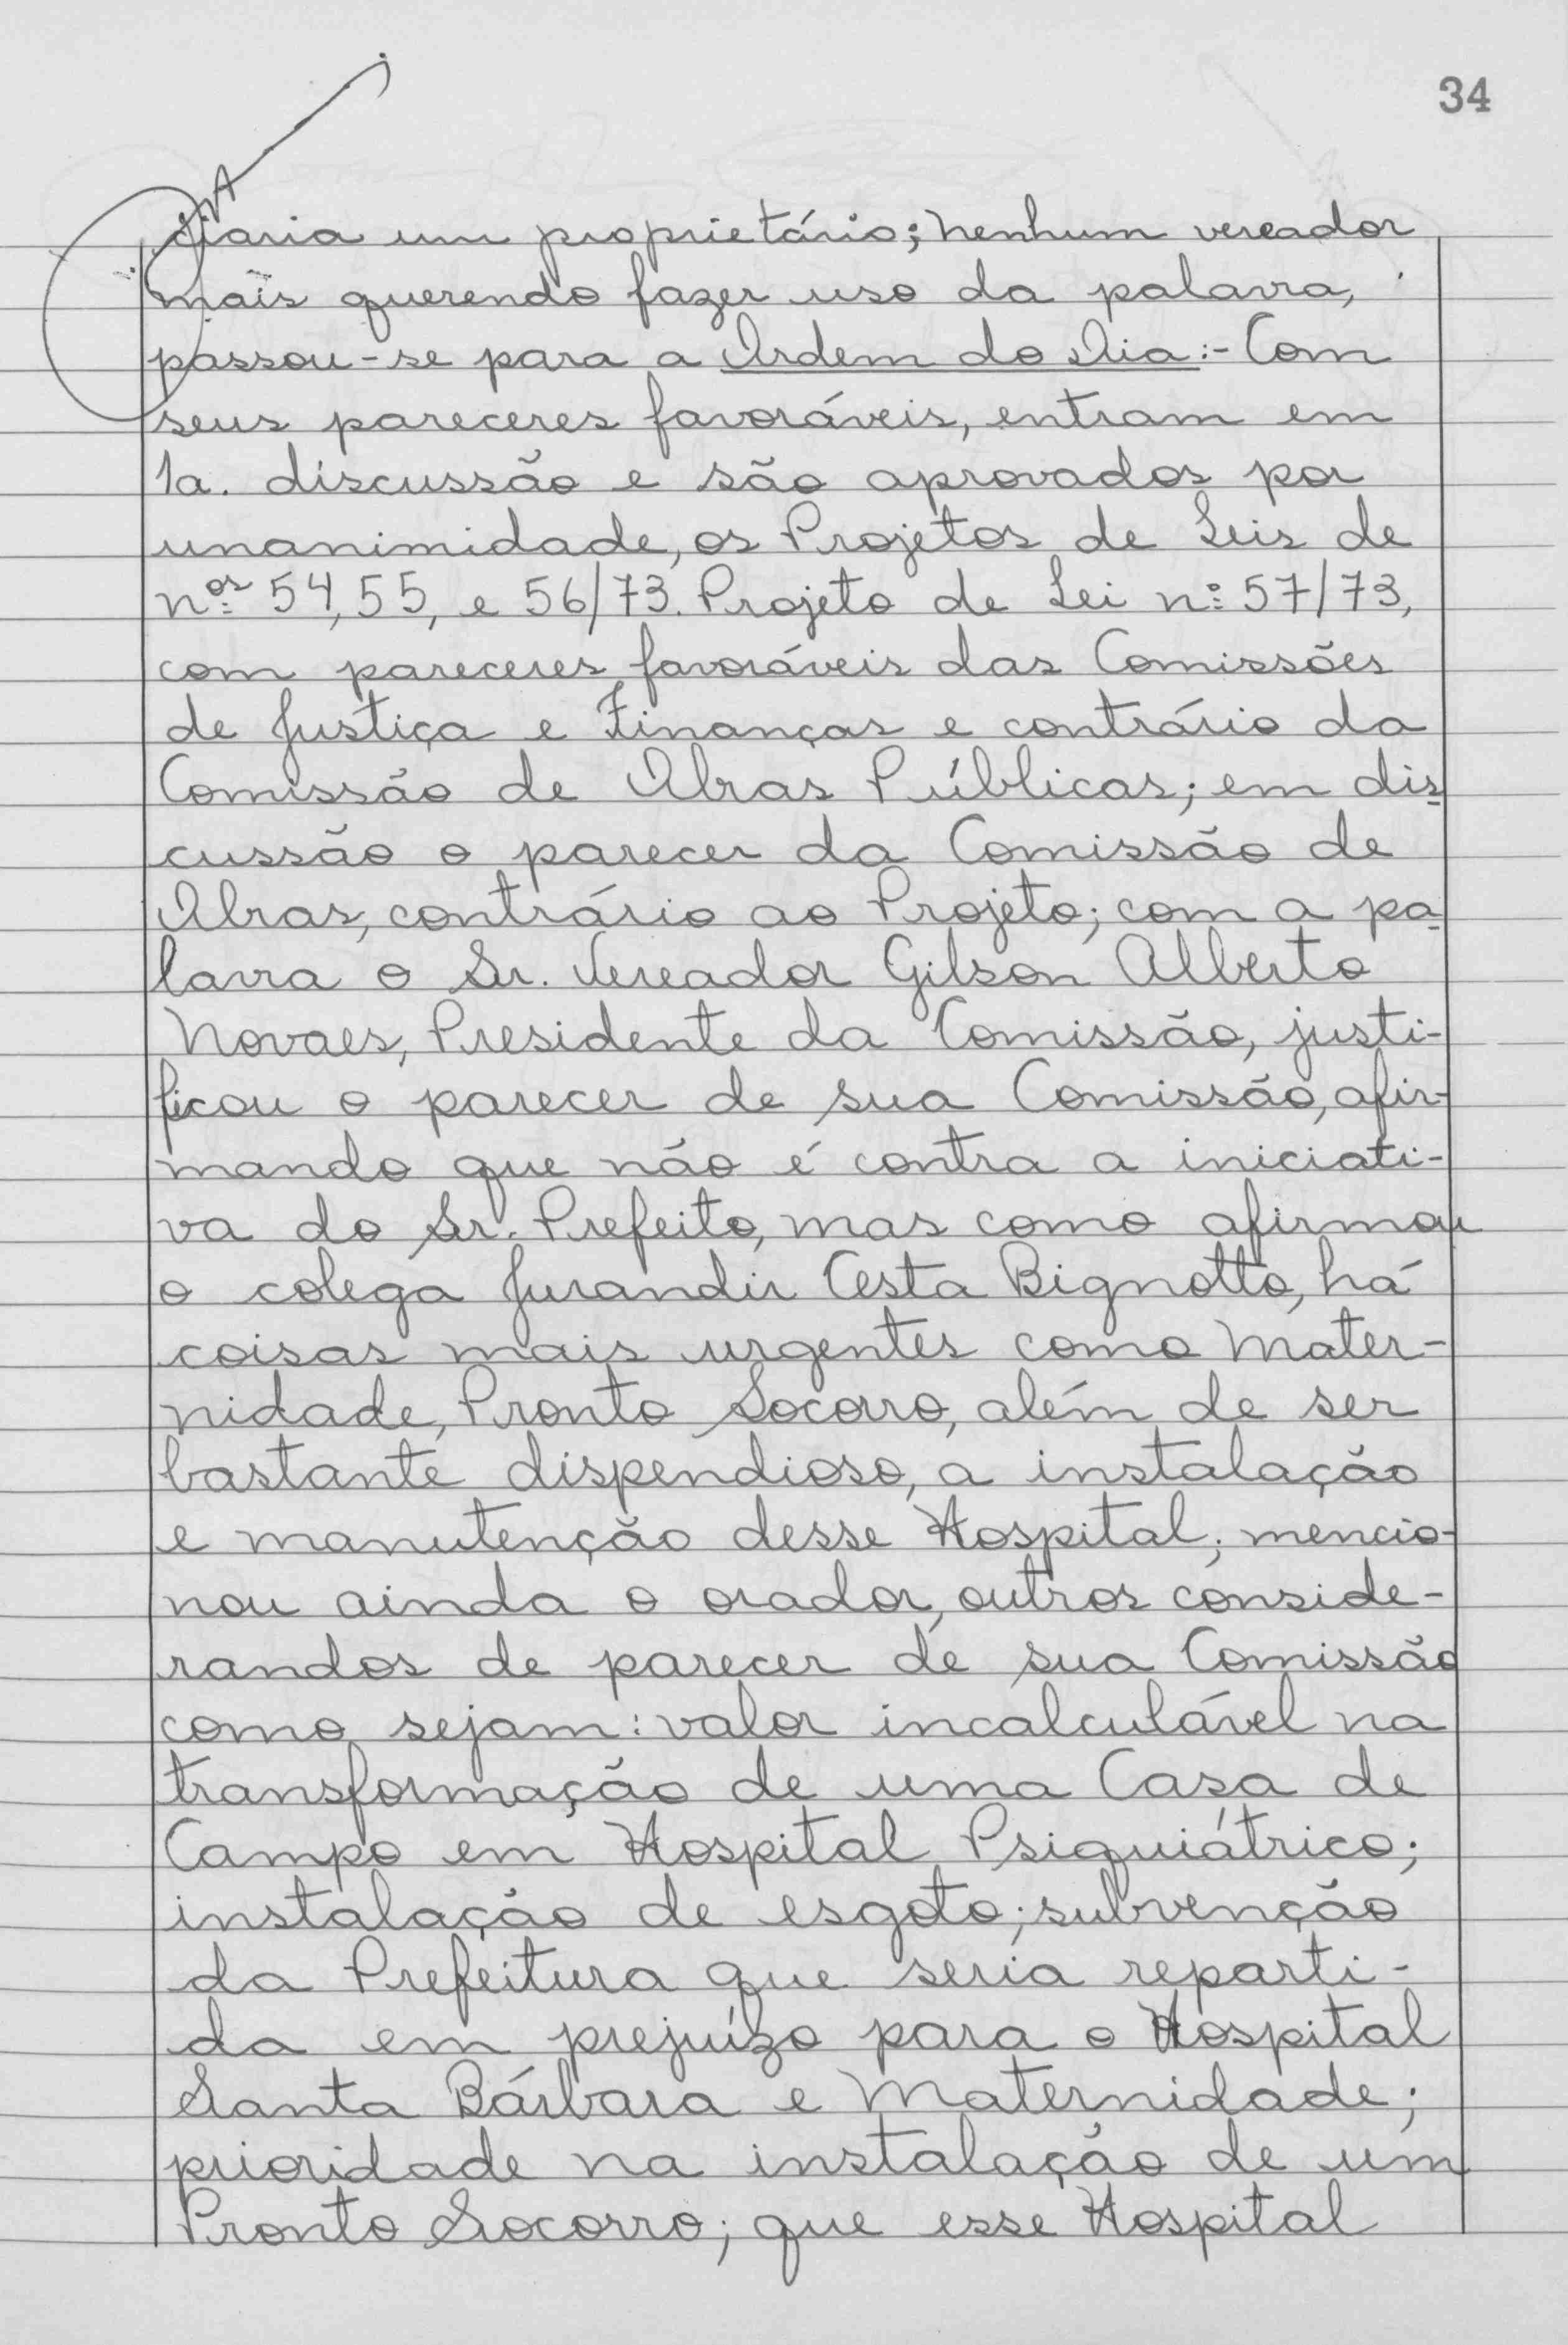 34
ciaria um proprietário; nenhum vereador
mais querendo fazer uso da palavra,
passou-se para a Ordem do Dia:- Com
seus pareceres favoráveis, entram em
1a. discussão e são aprovados por
unanimidade, os Projetos de Leis de
nºs 54, 55, e 56/73. Projeto de Lei nº 57/73,
com pareceres favoráveis das Comissões
de Justiça e Finanças e contrário da
Comissão de Obras Públicas; em dis
cussão o parecer da Comissão de
Obras, contrário ao Projeto; com a pa
lavra o Sr. Vereador Gilson Alberto
Novaes, Presidente da Comissão, justi-
ficou o parecer de sua Comissão, afir-
mando que não é contra a iniciati-
va do Sr. Prefeito, mas como afirmou
o colega Jurandir Cesta Bignotto, há
coisas mais urgentes como Mater-
nidade, Pronto Socorro, além de ser
bastante dispendioso, a instalação
e manutenção desse Hospital; mencio-
nou ainda o orador, outros conside-
randos de parecer de sua Comissão
como sejam: valor incalculável na
transformação de uma Casa de
Campo em Hospital Psiquiátrico;
instalação de esgoto; subvenção
da Prefeitura que seria reparti-
da em prejuízo para o Hospital
Santa Bárbara e Maternidade;
prioridade na instalação de um
Pronto Socorro; que esse Hospital